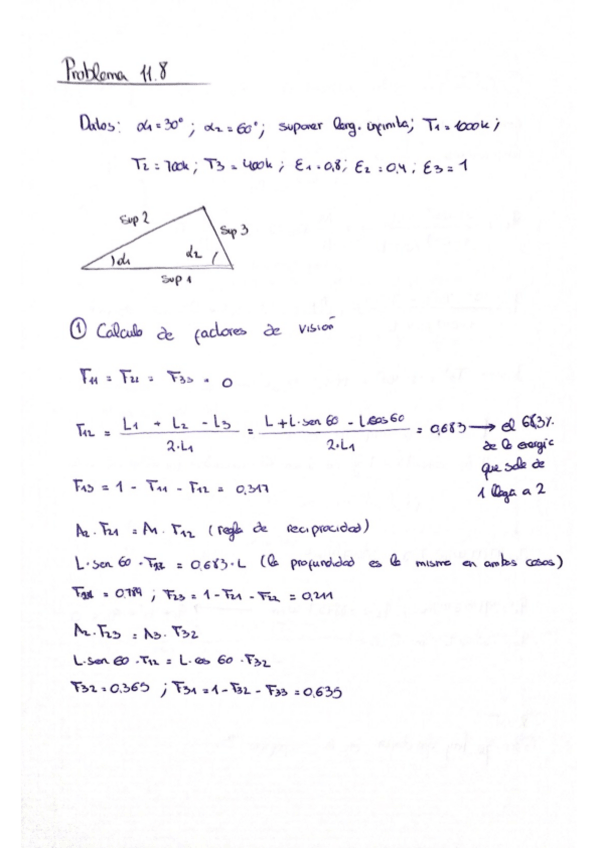 Problema 11.8
Datos: α1 = 30°; α2 = 60°; suponer larg. infinita; T1 = 1000k;
T2 = 700k; T3 = 400k; ε1 = 0,8; ε2 = 0,4; ε3 = 1
Sup 2
Sup 3
α1
α2
Sup 1
① Cálculo de factores de visión
F11 = F22 = F33 = 0
F12 = (L1 + L2 - L3) / (2·L1) = (L + L·sen 60 - L·cos 60) / (2·L1) = 0,683 → el 68,3%
de la energía
que sale de
1 llega a 2
F13 = 1 - F11 - F12 = 0,317
A2·F21 = A1·F12 (regla de reciprocidad)
L·sen 60 · F21 = 0,683·L (la profundidad es la misma en ambos casos)
F21 = 0,789; F23 = 1 - F21 - F22 = 0,211
A2·F23 = A3·F32
L·sen 60 · F12 = L·cos 60 · F32
F32 = 0,365; F31 = 1 - F32 - F33 = 0,635